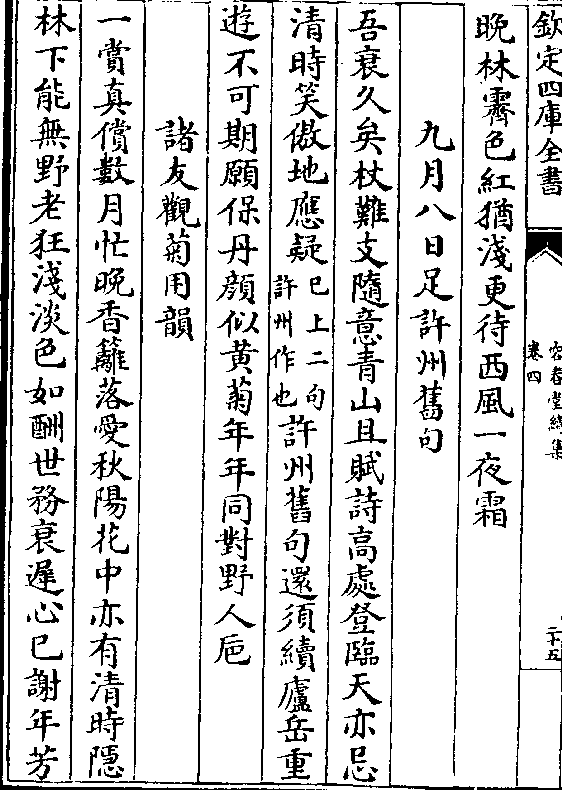 欽定四庫全書
容春堂續集
卷四
二十五
晚林霽色紅猶淺更待西風一夜霜
九月八日足許州舊句
吾衰久矣杖難支隨意青山且賦詩高處登臨天亦忌
清時笑傲地應疑已上二句許州作也許州舊句還須續廬岳重
遊不可期願保丹顔似黄菊年年同對野人巵
諸友觀菊用韻
一賞真償數月忙晚香籬落愛秋陽花中亦有清時隱
林下能無野老狂淺淡色如酬世務衰遲心已謝年芳